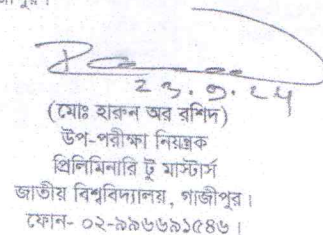 জীপুর।
২৩.৯.২৪
(মোঃ হারুন অর রশিদ)
উপ-পরীক্ষা নিয়ন্ত্রক
প্রিলিমিনারি টু মাস্টার্স
জাতীয় বিশ্ববিদ্যালয়, গাজীপুর।
ফোন- ০২-৯৯৬৬৯১৫৪৬।